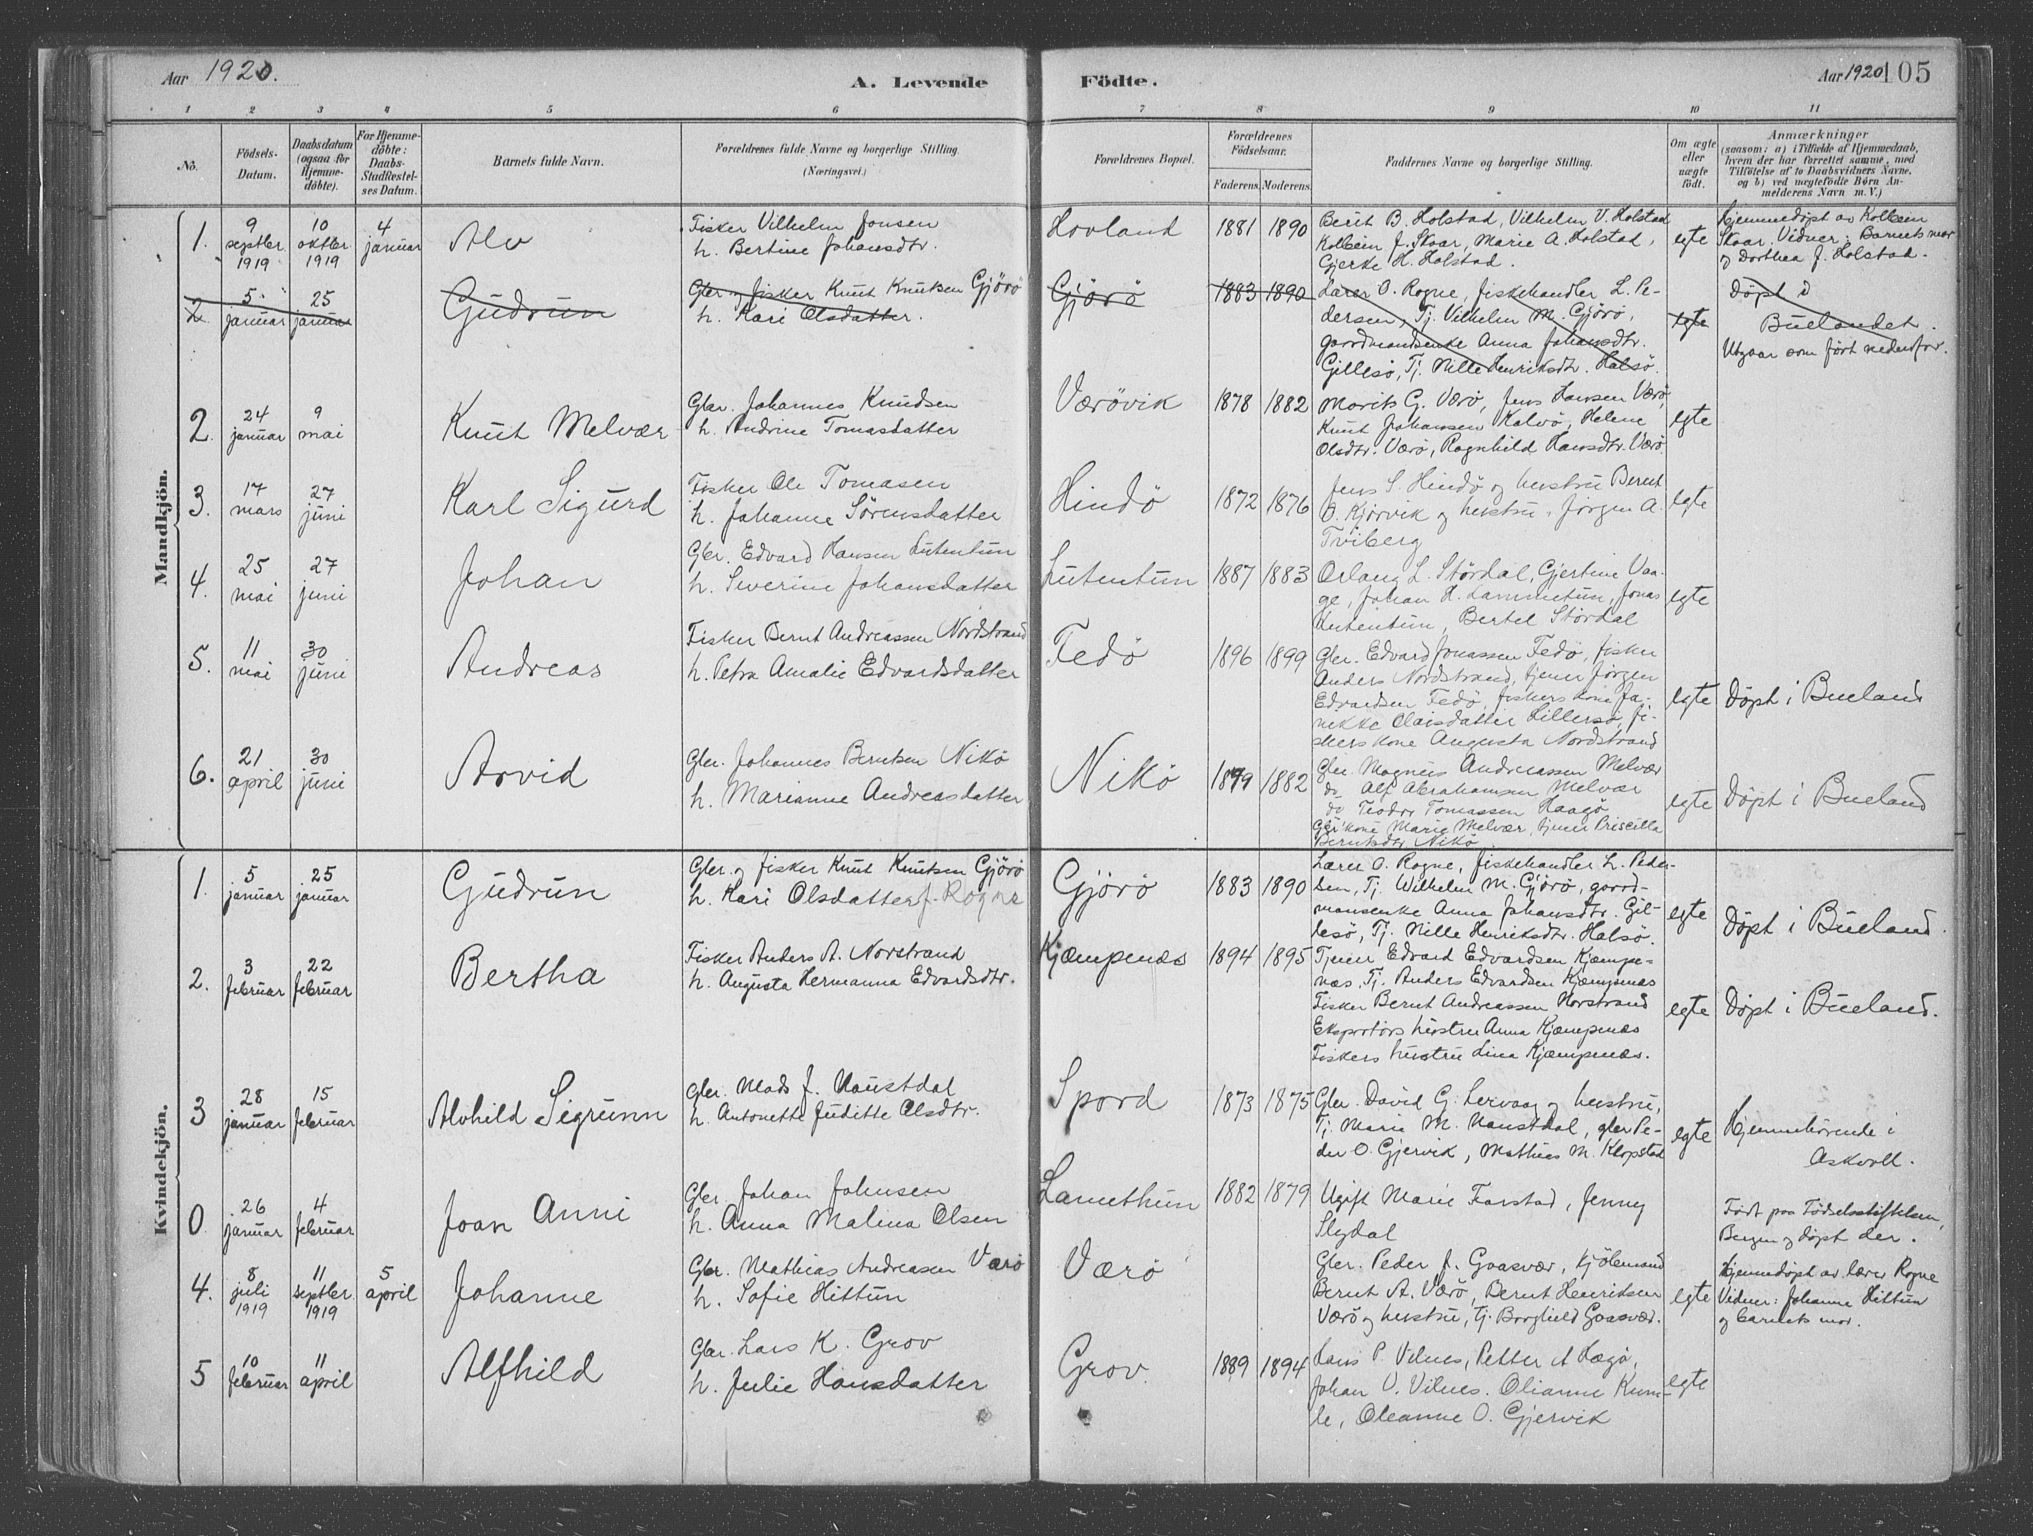 Aar 1920.
A. Levende
Födte.
Aar 1920
105
1 2 3 4 5 6 7 8 9 10 11
No.
Födsels-
Datum.
Daabsdatum
(ogsaa for
Hjemme-
døbte).
For Hjemme-
döbte:
Daabs-
Stadfæstel-
ses Datum.
Barnets fulde Navn.
Forældrenes fulde Navne og borgerlige Stilling
(Næringsvei.)
Forældrenes Bopæl.
Forældrenes
Födselsaar.
Faderens. Moderens.
Faddernes Navne og borgerlige Stilling.
Om ægte
eller
uægte
födt.
Anmærkninger
(saasom: a) i Tilfælde af Hjemmedaab,
hvem der har forrettet samme, med
Tilföielse af to Daabsvidners Navne,
og b) ved uægtefödte Börn An-
melderens Navn m. V.)
Mandkjön.
1.
9
septbr
1919
10
oktbr
1919
4
januar
Alv
Fisker Vilhelm Jonsen
h. Bertine Johansdtr.
Hovland
1881
1890
Berit B. Holstad, Vilhelm V. Holstad
Kolbein J. Skaar, Marie A. Holstad,
Gjerke H. Holstad.
egte
Hjemmedøpt av Kolbein
Skaar. Vidner: Barnets mor
og Dorthea J. Holstad.
2.
5
januar
25
januar
Gudrun
Gbr. og fisker Knut Knutsen Gjörö
h. Kari Olsdatter.
Gjörö
1883
1890
Lærer O. Rogne, fiskehandler L. Pe-
dersen, Tj. Vilhelm M. Gjörö,
gaardmandsenke Anna Johansdtr.
Gillesö, Tj. Nille Henriksdtr. Halsö.
egte
Døpt i
Buelandet.
Utgaar som ført nedenfor.
2.
24
januar
9
mai
Knut Melvær
Gbr. Johannes Knudsen
h. Andrine Tomasdatter
Værövik
1878
1882
Marits G. Værö, Jens Hansen Værö,
Knut Johansen Kalvö, Helene
Olsdtr. Værö, Ragnhild Hansdtr. Værö
egte
3.
17
mars
27
juni
Karl Sigurd
Fisker Ole Tomasen
h. Johanne Sörensdatter
Hindö
1872
1876
Jens S. Hindö og hustru Bernt
O. Kjörvik og hustru. Jörgen A.
Tviberg
egte
4.
25
mai
27
juni
Johan
Gbr. Edvard Hansen Lutentun
h. Severine Johansdatter
Lutentun
1887
1883
Orlaug L. Stördal, Gjertine Vaa-
ge, Johan H. Lammetun, Jonas
Lutentun, Bertel Stördal
egte
5.
11
mai
30
juni
Andreas
Fisker Bernt Andreassen Nordstrand
h. Petra Amalie Edvardsdatter
Fedö
1896
1899
Gbr. Edvard Jonassen Fedö, fisker
Anders Nordstrand, tjener Jörgen
Edvardsen Fedö, fiskers kone Ja-
nikke Claisdatter Lillersö, fi-
skers kone Augusta Nordstrand
egte
Døpt i Bueland
6.
21
april
30
juni
Arvid
Gbr. Johannes Berntsen Nikö
h. Marianne Andreasdatter
Nikö
1879
1882
Gbr. Magnus Andreassen Melvær
do Alf Abrahamsen Melvær
do Teodor Tomassen Haagö
Gbr kone Marie Melvær, tjener Priscilla
Berntsdtr Nikö
egte
Døpt i Bueland
Kvindekjön.
1.
5
januar
25
januar
Gudrun
Gbr. og fisker Knut Knutsen Gjörö
h. Kari Olsdatter f. Rogne
Gjörö
1883
1890
Lærer O. Rogne, fiskehandler L. Peder-
sen, Tj. Wilhelm M. Gjörö, gaard-
mansenke Anna Johansdtr. Gil-
lesö, Tj. Nille Henriksdtr. Halsö.
egte
Døpt i Bueland.
2.
3
februar
22
februar
Bertha
Fisker Anders A. Norstrand
h. Augusta Hermanna Edvardsdtr.
Kjæmpenæs
1894
1895
Tjener Edvard Edvardsen Kjæmpe-
næs, Tj. Anders Edvardsen Kjæmpenæs
Fisker Bernt Andreassen Norstrand
Eksportörs hustru Anna Kjæmpenæs
Fiskers hustru Lina Kjæmpenæs.
egte
Døpt i Bueland.
3
28
januar
15
februar
Alvhild Sigrunn
Gbr. Mads J. Naustdal
h. Antonette Juditte Olsdtr.
Spord
1873
1875
Gbr. David G. Lervaag og hustru,
Tj. Marie M. Naustdal, gbr Pe-
der O. Gjervik, Mathias M. Klopstad
egte
Hjemmehörende i
Askvoll.
0
26
januar
4
februar
Joan Anni
Gbr. Johan Johnsen
h. Anna Malina Olsen
Lamethun
1882
1879
Ugift Marie Farstad, Jenny
Slydal
Født paa Fødselsstiftelsen,
Bergen og døpt der.
4.
8
juli
1919
11
septbr.
1919
5
april
Johanne
Gbr. Mathias Andreasen Værö
h. Sofie Hittun
Værö
Gbr. Peder J. Gaasvær, Kjölemand
Bernt A. Værö, Bernt Henriksen
Værö og hustru, Tj. Borghild Gaasvær.
egte
Hjemmedøpt av lærer Rogne
Vidner: Johanne Hittun
og barnets mor.
5
10
februar
11
april
Alfhild
Gbr. Lars K. Grov
h. Julie Hansdatter
Grov
1889
1894
Lars P. Vilnes, Petter A Hægö,
Johan O. Vilnes. Olianne Kum-
le, Oleanne O. Gjervik
egte